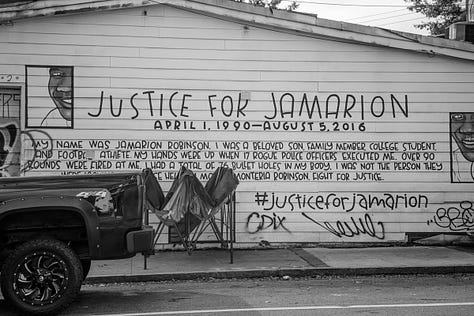 JUSTICE FOR JAMARION
APRIL 1, 1990-AUGUST 5, 2016
MY NAME WAS JAMARION ROBINSON. I WAS A BELOVED SON, FAMILY MEMBER COLLEGE STUDENT
AND FOOTB ATHLETE MY HANDS WERE UP WHEN 17 ROGUE POLICE OFFICERS EXECUTED ME. OVER 90
ROUNDS WERE FIRED AT ME. I HAD A TOTAL OF 76 BULLET HOLES IN MY BODY. I WAS NOT THE PERSON THEY
MONTERIA ROBINSON, FIGHT FOR JUSTICE.
#justiceforjamarion